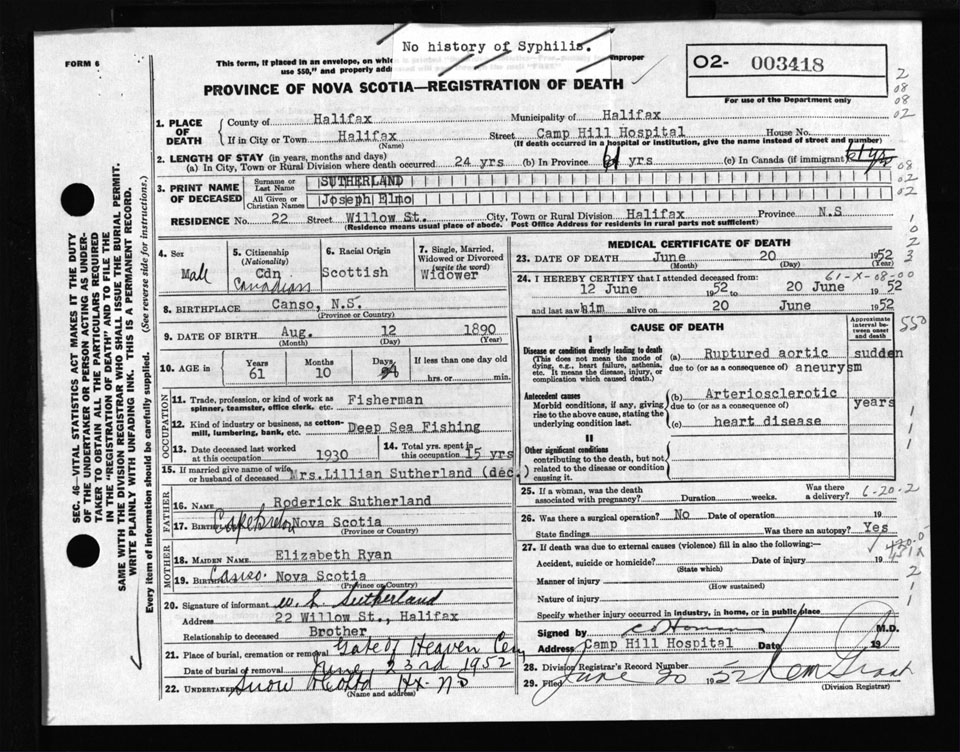 No history of Syphilis.
FORM 6
This form, if placed in an envelope, on whic
improper
use $50," and properly add
PROVINCE OF NOVA SCOTIA—REGISTRATION OF DEATH
O2- 003418
For use of the Department only
1. PLACE OF DEATH
County of Halifax Municipality of Halifax
If in City or Town Halifax Street Camp Hill Hospital House No.
(Name) (If death occurred in a hospital or institution, give the name instead of street and number)
2. LENGTH OF STAY (in years, months and days)
(a) In City, Town or Rural Division where death occurred 24 yrs (b) In Province 61 yrs (c) In Canada (if immigrant) 61 yrs
3. PRINT NAME OF DECEASED
Surname or Last Name SUTHERLAND
All Given or Christian Names Joseph Elmo
RESIDENCE No. 22 Street Willow St. City, Town or Rural Division Halifax Province N.S
(Residence means usual place of abode. Post Office Address for residents in rural parts not sufficient)
4. Sex Male
5. Citizenship (Nationality) Cdn Canadian
6. Racial Origin Scottish
7. Single, Married, Widowed or Divorced (write the word) Widower
8. BIRTHPLACE Canso, N.S.
(Province or Country)
9. DATE OF BIRTH Aug. 12 1890
(Month) (Day) (Year)
10. AGE in Years 61 Months 10 Days If less than one day old hrs. or min.
OCCUPATION
11. Trade, profession, or kind of work as spinner, teamster, office clerk, etc. Fisherman
12. Kind of industry or business, as cotton-mill, lumbering, bank, etc. Deep Sea Fishing
13. Date deceased last worked at this occupation 1930
14. Total yrs. spent in this occupation 15 yrs
15. If married give name of wife or husband of deceased Mrs. Lillian Sutherland (dec.)
FATHER
16. NAME Roderick Sutherland
17. BIRTH Cape Breton Nova Scotia
(Province or Country)
MOTHER
18. MAIDEN NAME Elizabeth Ryan
19. BIRTH Canso. Nova Scotia
(Province or Country)
20. Signature of informant W. L. Sutherland
Address 22 Willow St., Halifax
Relationship to deceased Brother
21. Place of burial, cremation or removal Gate of Heaven Cem
Date of burial or removal June 23rd 1952
22. UNDERTAKER Snow & Co Ltd Hx-NS
(Name and address)
MEDICAL CERTIFICATE OF DEATH
23. DATE OF DEATH June 20 1952
(Month) (Day) (Year)
61-X-08-00
24. I HEREBY CERTIFY that I attended deceased from:
12 June 1952 to 20 June 1952
and last saw him alive on 20 June 1952
CAUSE OF DEATH
Approximate interval between onset and death
I
Disease or condition directly leading to death
(This does not mean the mode of dying, e.g., heart failure, asthenia, etc. It means the disease, injury, or complication which caused death.)
(a) Ruptured aortic sudden
due to (or as a consequence of) aneurysm
Antecedent causes
Morbid conditions, if any, giving rise to the above cause, stating the underlying condition last.
(b) Arteriosclerotic years
due to (or as a consequence of)
(c) heart disease
II
Other significant conditions
contributing to the death, but not related to the disease or condition causing it.
25. If a woman, was the death associated with pregnancy? Duration weeks. Was there a delivery?
6-20-2
26. Was there a surgical operation? No Date of operation 19
State findings Was there an autopsy? Yes
27. If death was due to external causes (violence) fill in also the following:—
Accident, suicide or homicide? Date of injury 19
(State which)
Manner of injury
(How sustained)
Nature of injury
Specify whether injury occurred in industry, in home, or in public place
Signed by M.D.
Address Camp Hill Hospital Date 19
28. Division Registrar's Record Number
29. Filed June 20 1952
(Division Registrar)
SEC. 46—VITAL STATISTICS ACT MAKES IT THE DUTY
OF THE UNDERTAKER OR PERSON ACTING AS UNDER-
TAKER TO OBTAIN ALL THE PARTICULARS REQUIRED
IN THE "REGISTRATION OF DEATH" AND TO FILE THE
SAME WITH THE DIVISION REGISTRAR WHO SHALL ISSUE THE BURIAL PERMIT.
WRITE PLAINLY WITH UNFADING INK. THIS IS A PERMANENT RECORD.
Every item of information should be carefully supplied. (See reverse side for instructions.)
2
08
08
02
08
02
1
0
2
3
550
1
1
1
2
1
1